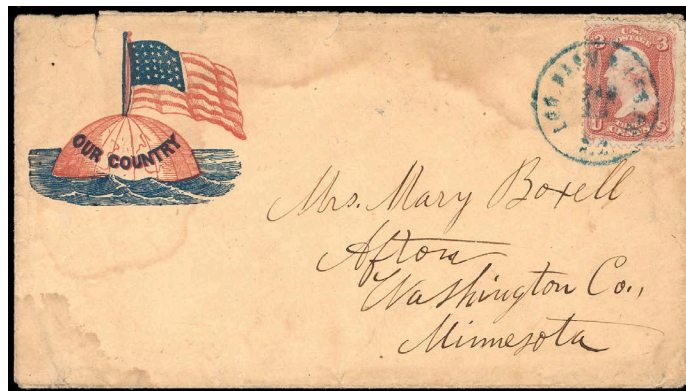 OUR COUNTRY
U.S.
3 POSTAGE 3
Mrs. Mary Boxell
Afton
Washington Co.,
Minnesota